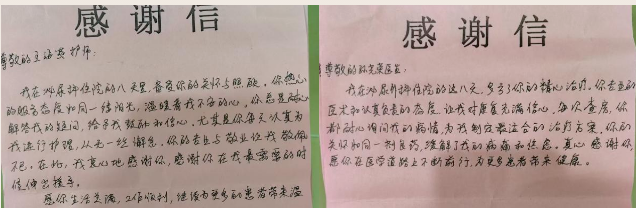 感谢信
尊敬的王 护师:
我在泌尿科住院的八天里,备受你的关怀与照顾,你热心
的服务态度如同一缕阳光,温暖着我不安的心,你总是耐心
解答我的疑问,给予我鼓励和信心,尤其是你每天认真为
我进行护理,从无一丝懈怠,你的专业与敬业让我敬佩
不已,在此,我衷心地感谢你,感谢你在我最需要的时
候伸出援手。
愿你生活美满,工作顺利,继续为更多的患者带来温
感谢信
尊敬的 医生:
我在泌尿科住院的这八天,多亏你的精心治疗,你专业的
医术和认真负责的态度,让我对康复充满信心,每次查房,你
都耐心询问我的病情,为我制定最适合的治疗方案,你的
关怀如同一剂良药,缓解了我的病痛和焦虑。真心感谢你,
愿你在医学道路上不断前行,为更多患者带来健康。